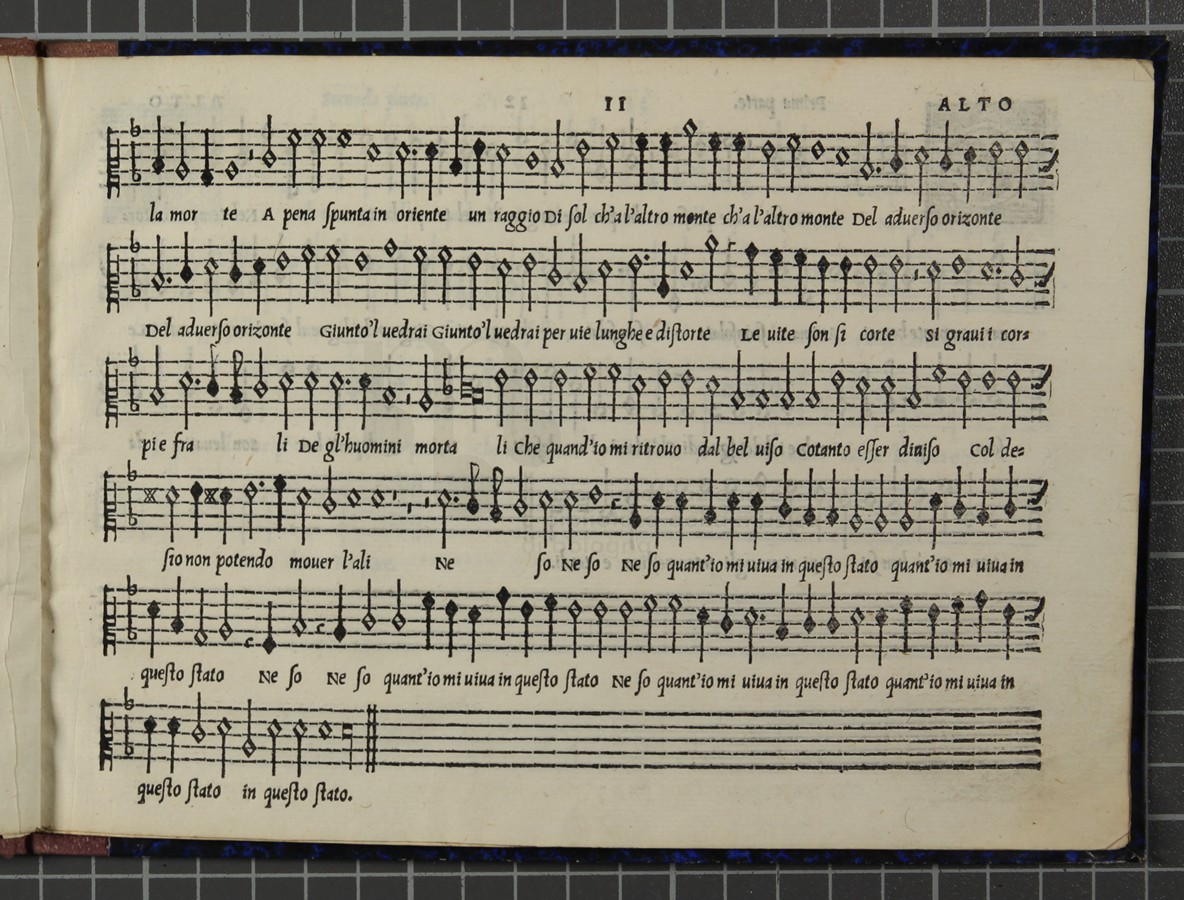 11 ALTO
la mor te A pena ſpunta in oriente un raggio Di ſol ch'a l'altro monte ch'a l'altro monte Del aduerſo orizonte
Del aduerſo orizonte Giunto'l uedrai Giunto'l uedrai per uie lunghe e diſtorte Le uite ſon ſi corte Si graui i cor=
pi e fra li De gl'huomini morta li Che quand'io mi ritrouo dal bel uiſo Cotanto eſſer diuiſo Col de=
ſio non potendo mouer l'ali Ne ſo Ne ſo Ne ſo quant'io mi uiua in queſto ſtato quant'io mi uiua in
queſto ſtato Ne ſo Ne ſo quant'io mi uiua in queſto ſtato Ne ſo quant'io mi uiua in queſto ſtato quant'io mi uiua in
queſto ſtato in queſto ſtato.